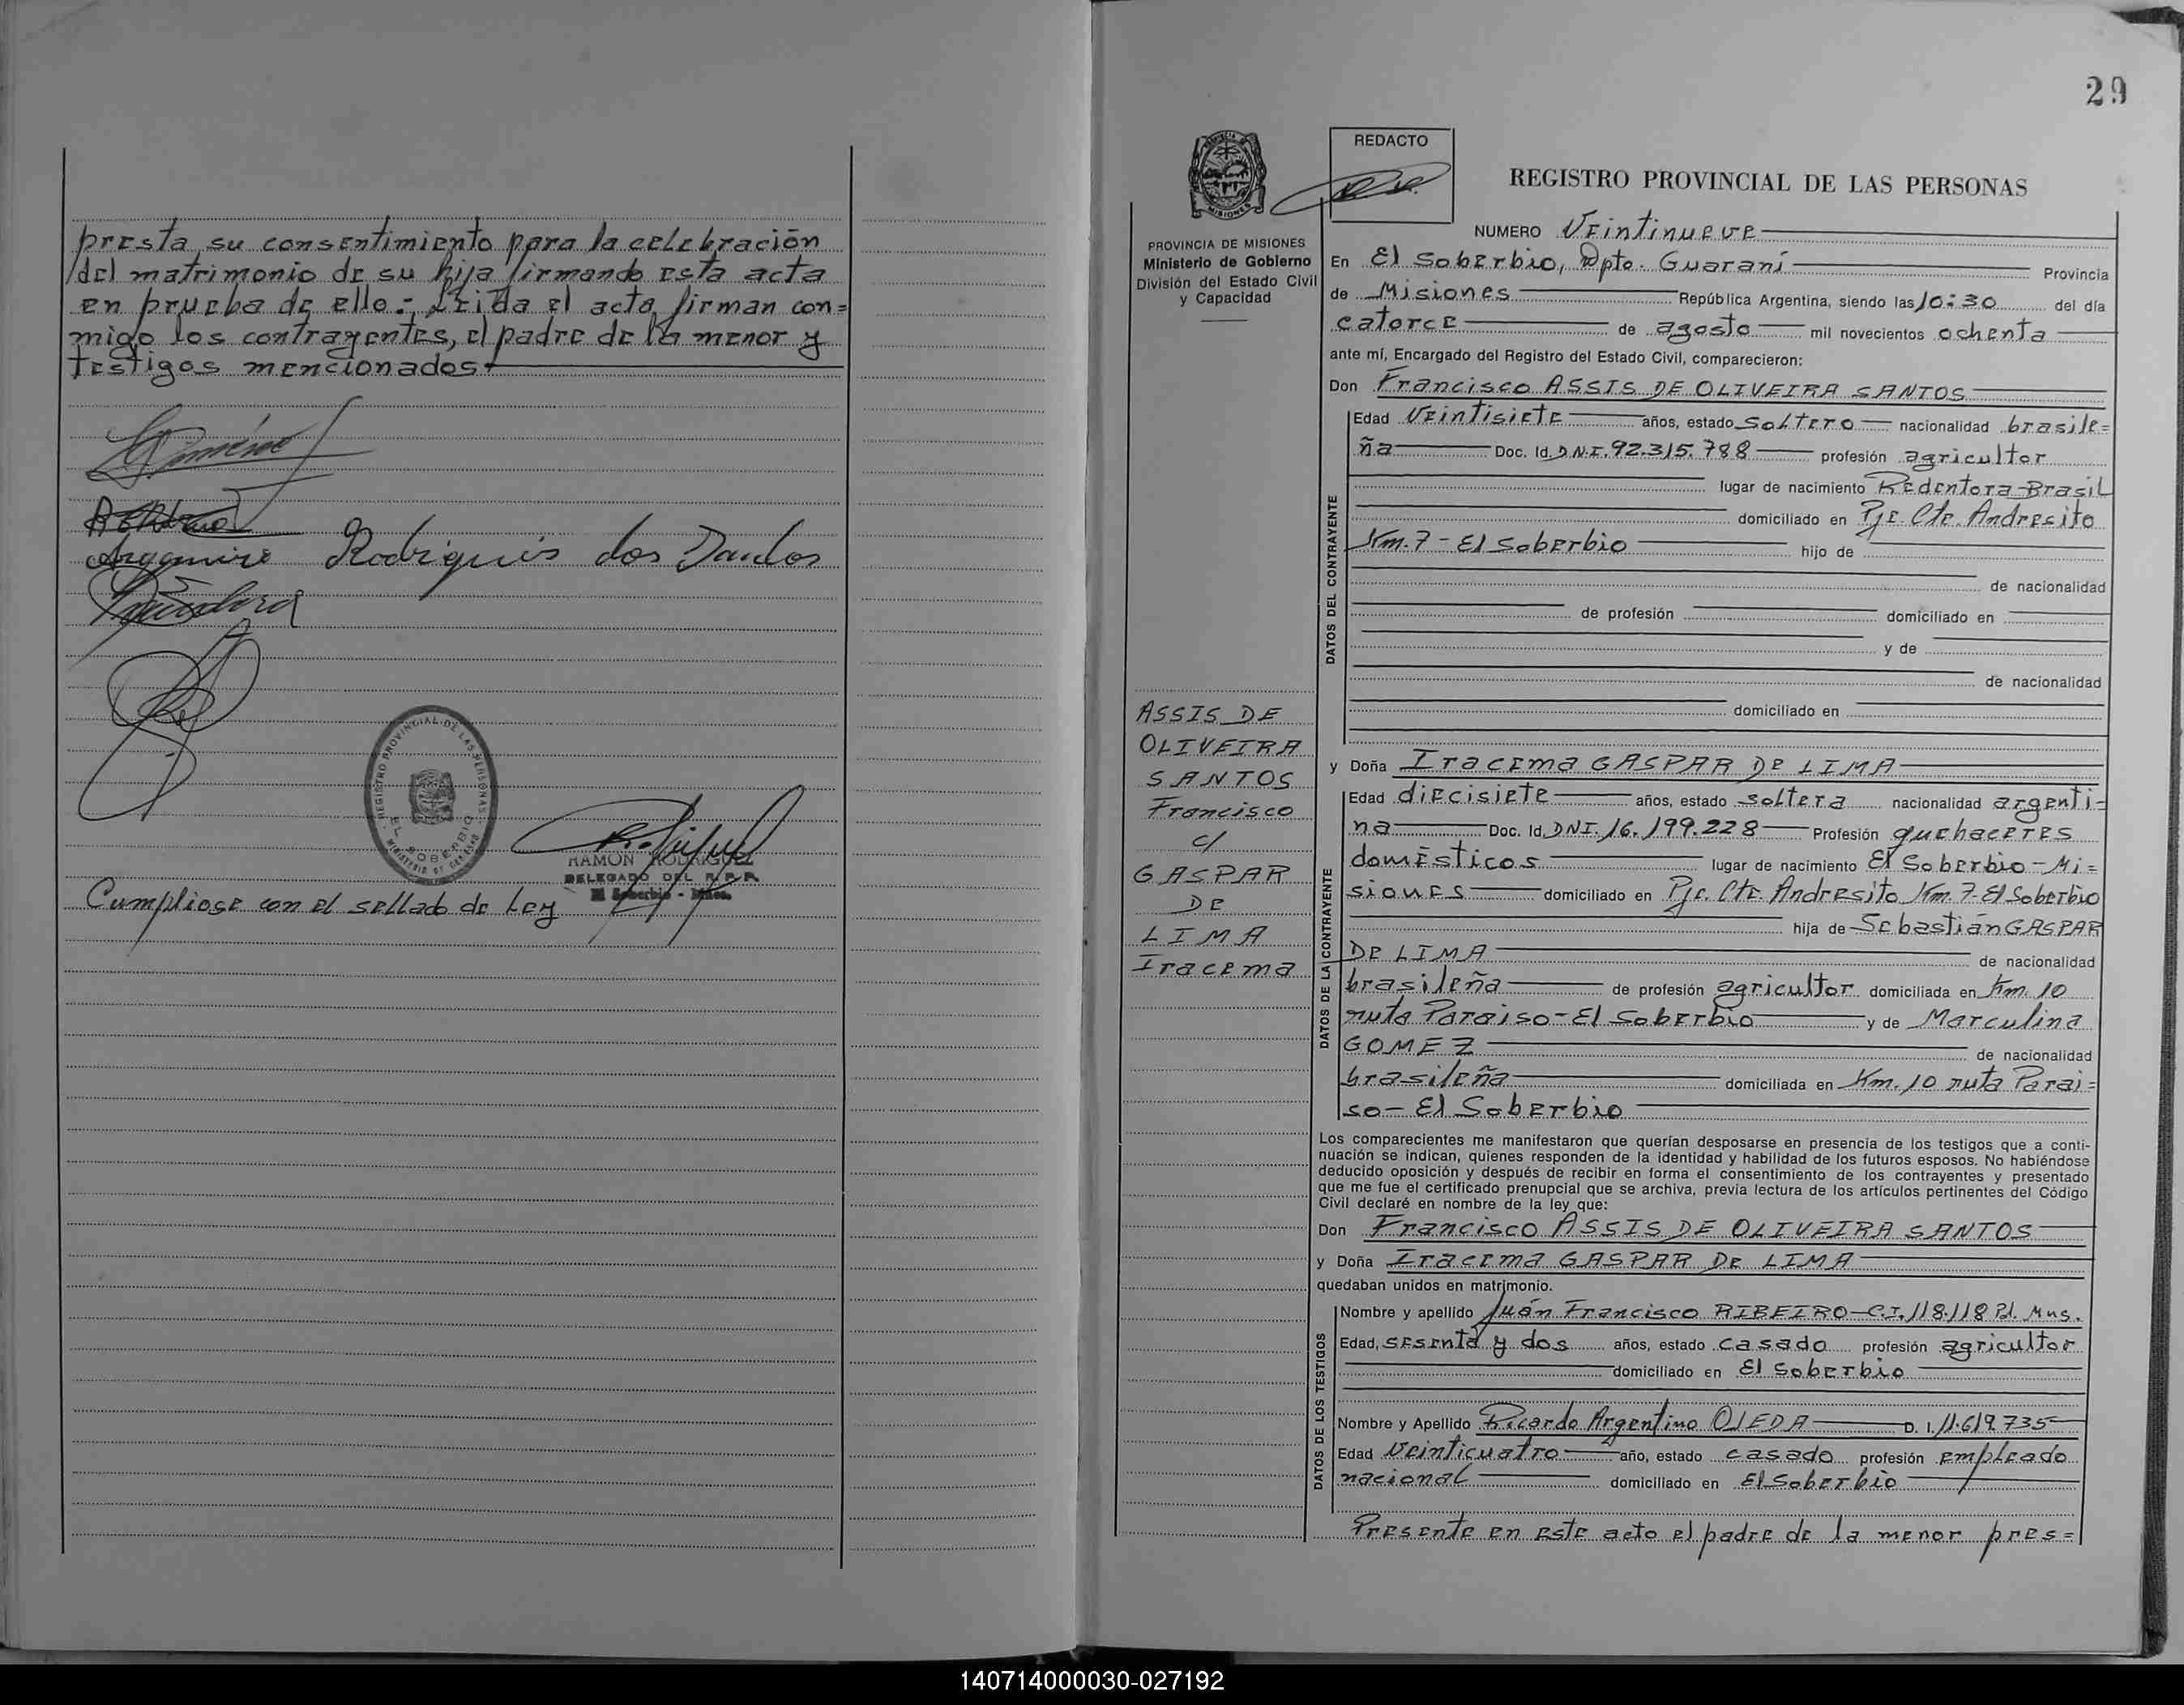 presta su consentimiento para la celebración
del matrimonio de su hija firmando esta acta
en prueba de ello: Leida el acta firman con=
migo los contrayentes, el padre de la menor y
testigos mencionados
Rodrigues dos Santos
REGISTRO PROVINCIAL DE LAS PERSONAS
EL SOBERBIO
RAMON RODRIGUEZ
DELEGADO DEL R.P.P.
El Soberbio - Mnes.
Cumpliose con el sellado de Ley
29
REDACTO
REGISTRO PROVINCIAL DE LAS PERSONAS
MISIONES
PROVINCIA DE MISIONES
Ministerio de Gobierno
División del Estado Civil
y Capacidad
NUMERO Veintinueve
En El Soberbio, Dpto. Guaraní Provincia
de Misiones República Argentina, siendo las 10:30 del día
catorce de agosto mil novecientos ochenta
ante mí, Encargado del Registro del Estado Civil, comparecieron:
Don Francisco ASSIS DE OLIVEIRA SANTOS
DATOS DEL CONTRAYENTE
Edad Veintisiete años, estado Soltero nacionalidad brasile=
ña Doc. Id. D.N.I. 92.315.788 profesión agricultor
lugar de nacimiento Redentora-Brasil
domiciliado en Pje. Cte. Andresito
Km. 7 - El Soberbio hijo de
de nacionalidad
de profesión domiciliado en
y de
de nacionalidad
domiciliado en
ASSIS DE
OLIVEIRA
SANTOS
Francisco
c/
GASPAR
DE
LIMA
Iracema
y Doña Iracema GASPAR DE LIMA
DATOS DE LA CONTRAYENTE
Edad diecisiete años, estado soltera nacionalidad argenti=
na Doc. Id. DNI. 16.199.228 Profesión quehaceres
domésticos lugar de nacimiento El Soberbio - Mi=
siones domiciliado en Pje. Cte. Andresito Km. 7-El Soberbio
hija de Sebastián GASPAR
DE LIMA de nacionalidad
brasileña de profesión agricultor domiciliada en Km. 10
ruta Paraiso-El Soberbio y de Marculina
GOMEZ de nacionalidad
brasileña domiciliada en Km. 10 ruta Parai=
so- El Soberbio
Los comparecientes me manifestaron que querían desposarse en presencia de los testigos que a conti-
nuación se indican, quienes responden de la identidad y habilidad de los futuros esposos. No habiéndose
deducido oposición y después de recibir en forma el consentimiento de los contrayentes y presentado
que me fue el certificado prenupcial que se archiva, previa lectura de los artículos pertinentes del Código
Civil declaré en nombre de la ley que:
Don Francisco ASSIS DE OLIVEIRA SANTOS
y Doña Iracema GASPAR DE LIMA
quedaban unidos en matrimonio.
DATOS DE LOS TESTIGOS
Nombre y apellido Juán Francisco RIBEIRO-C.I. 118.118 Pol. Mns.
Edad, sesenta y dos años, estado casado profesión agricultor
domiciliado en El Soberbio
Nombre y Apellido Ricardo Argentino OJEDA D. I. 11.619.735
Edad Veinticuatro año, estado casado profesión empleado
nacional domiciliado en El Soberbio
Presente en este acto el padre de la menor pres=
140714000030-027192